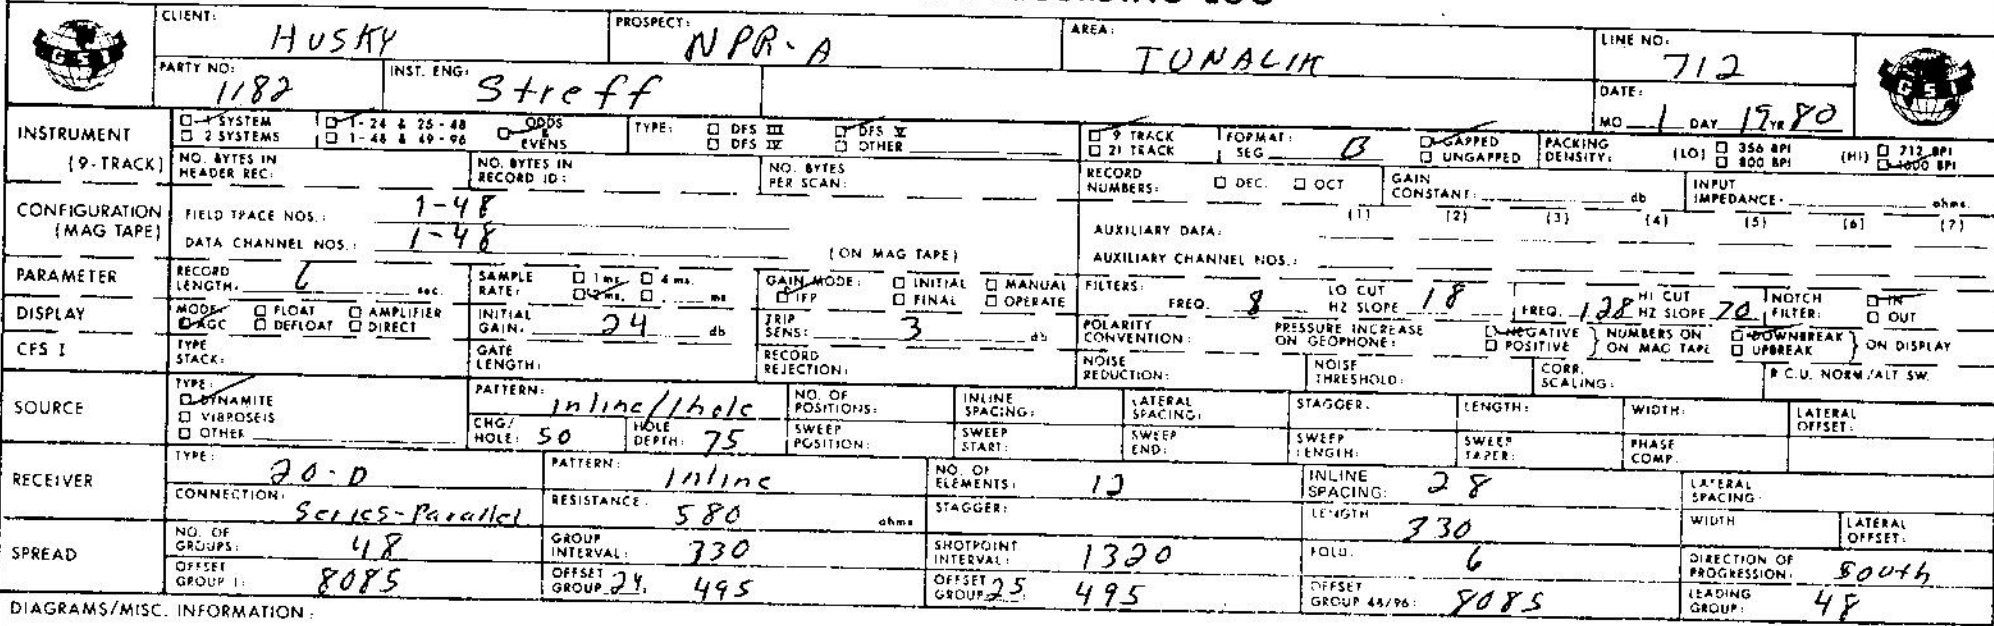 CLIENT: HUSKY PROSPECT: NPR-A AREA: TUNALIK LINE NO: 712
GSI
PARTY NO: 1182 INST. ENG: Streff DATE: MO 1 DAY 19 YR 80
GSI
INSTRUMENT (9-TRACK) 1 SYSTEM 1-24 & 25-48 ODDS & EVENS TYPE: DFS III DFS V 9 TRACK FORMAT: SEG B GAPPED PACKING DENSITY: (LO) 356 BPI (HI) 712 BPI
2 SYSTEMS 1-48 & 49-96 DFS IV OTHER 21 TRACK UNGAPPED 800 BPI 1600 BPI
NO. BYTES IN HEADER REC: NO. BYTES IN RECORD ID: NO. BYTES PER SCAN: RECORD NUMBERS: DEC. OCT GAIN CONSTANT: db INPUT IMPEDANCE: ohms.
CONFIGURATION (MAG TAPE) FIELD TRACE NOS.: 1-48 AUXILIARY DATA: (1) (2) (3) (4) (5) (6) (7)
DATA CHANNEL NOS.: 1-48 (ON MAG TAPE) AUXILIARY CHANNEL NOS.:
PARAMETER RECORD LENGTH: 6 sec. SAMPLE RATE: 1 ms. 4 ms. 2 ms. ms GAIN MODE: INITIAL MANUAL IFP FINAL OPERATE FILTERS: FREQ. 8 LO CUT HZ SLOPE 18 FREQ. 128 HI CUT HZ SLOPE 70 NOTCH FILTER: IN OUT
DISPLAY MODE: FLOAT AMPLIFIER AGC DEFLOAT DIRECT INITIAL GAIN: 24 db TRIP SENS: 3 db POLARITY CONVENTION: PRESSURE INCREASE ON GEOPHONE: NEGATIVE POSITIVE } NUMBERS ON ON MAG TAPE DOWNBREAK UPBREAK } ON DISPLAY
CFS I TYPE STACK: GATE LENGTH: RECORD REJECTION: NOISE REDUCTION: NOISE THRESHOLD: CORR. SCALING: R.C.U. NORM/ALT SW.
SOURCE TYPE: DYNAMITE VIBROSEIS OTHER PATTERN: Inline/1hole NO. OF POSITIONS: INLINE SPACING: LATERAL SPACING: STAGGER: LENGTH: WIDTH: LATERAL OFFSET:
CHG/HOLE: 50 HOLE DEPTH: 75 SWEEP POSITION: SWEEP START: SWEEP END: SWEEP LENGTH: SWEEP TAPER: PHASE COMP.
RECEIVER TYPE: 20-D PATTERN: Inline NO. OF ELEMENTS: 12 INLINE SPACING: 28 LATERAL SPACING:
CONNECTION: Series-Parallel RESISTANCE: 580 ohms STAGGER: LENGTH 330 WIDTH LATERAL OFFSET:
SPREAD NO. OF GROUPS: 48 GROUP INTERVAL: 330 SHOTPOINT INTERVAL: 1320 FOLD: 6 DIRECTION OF PROGRESSION: South
OFFSET GROUP 1: 8085 OFFSET GROUP 24: 495 OFFSET GROUP 25: 495 OFFSET GROUP 48/96: 8085 LEADING GROUP: 48
DIAGRAMS/MISC. INFORMATION: